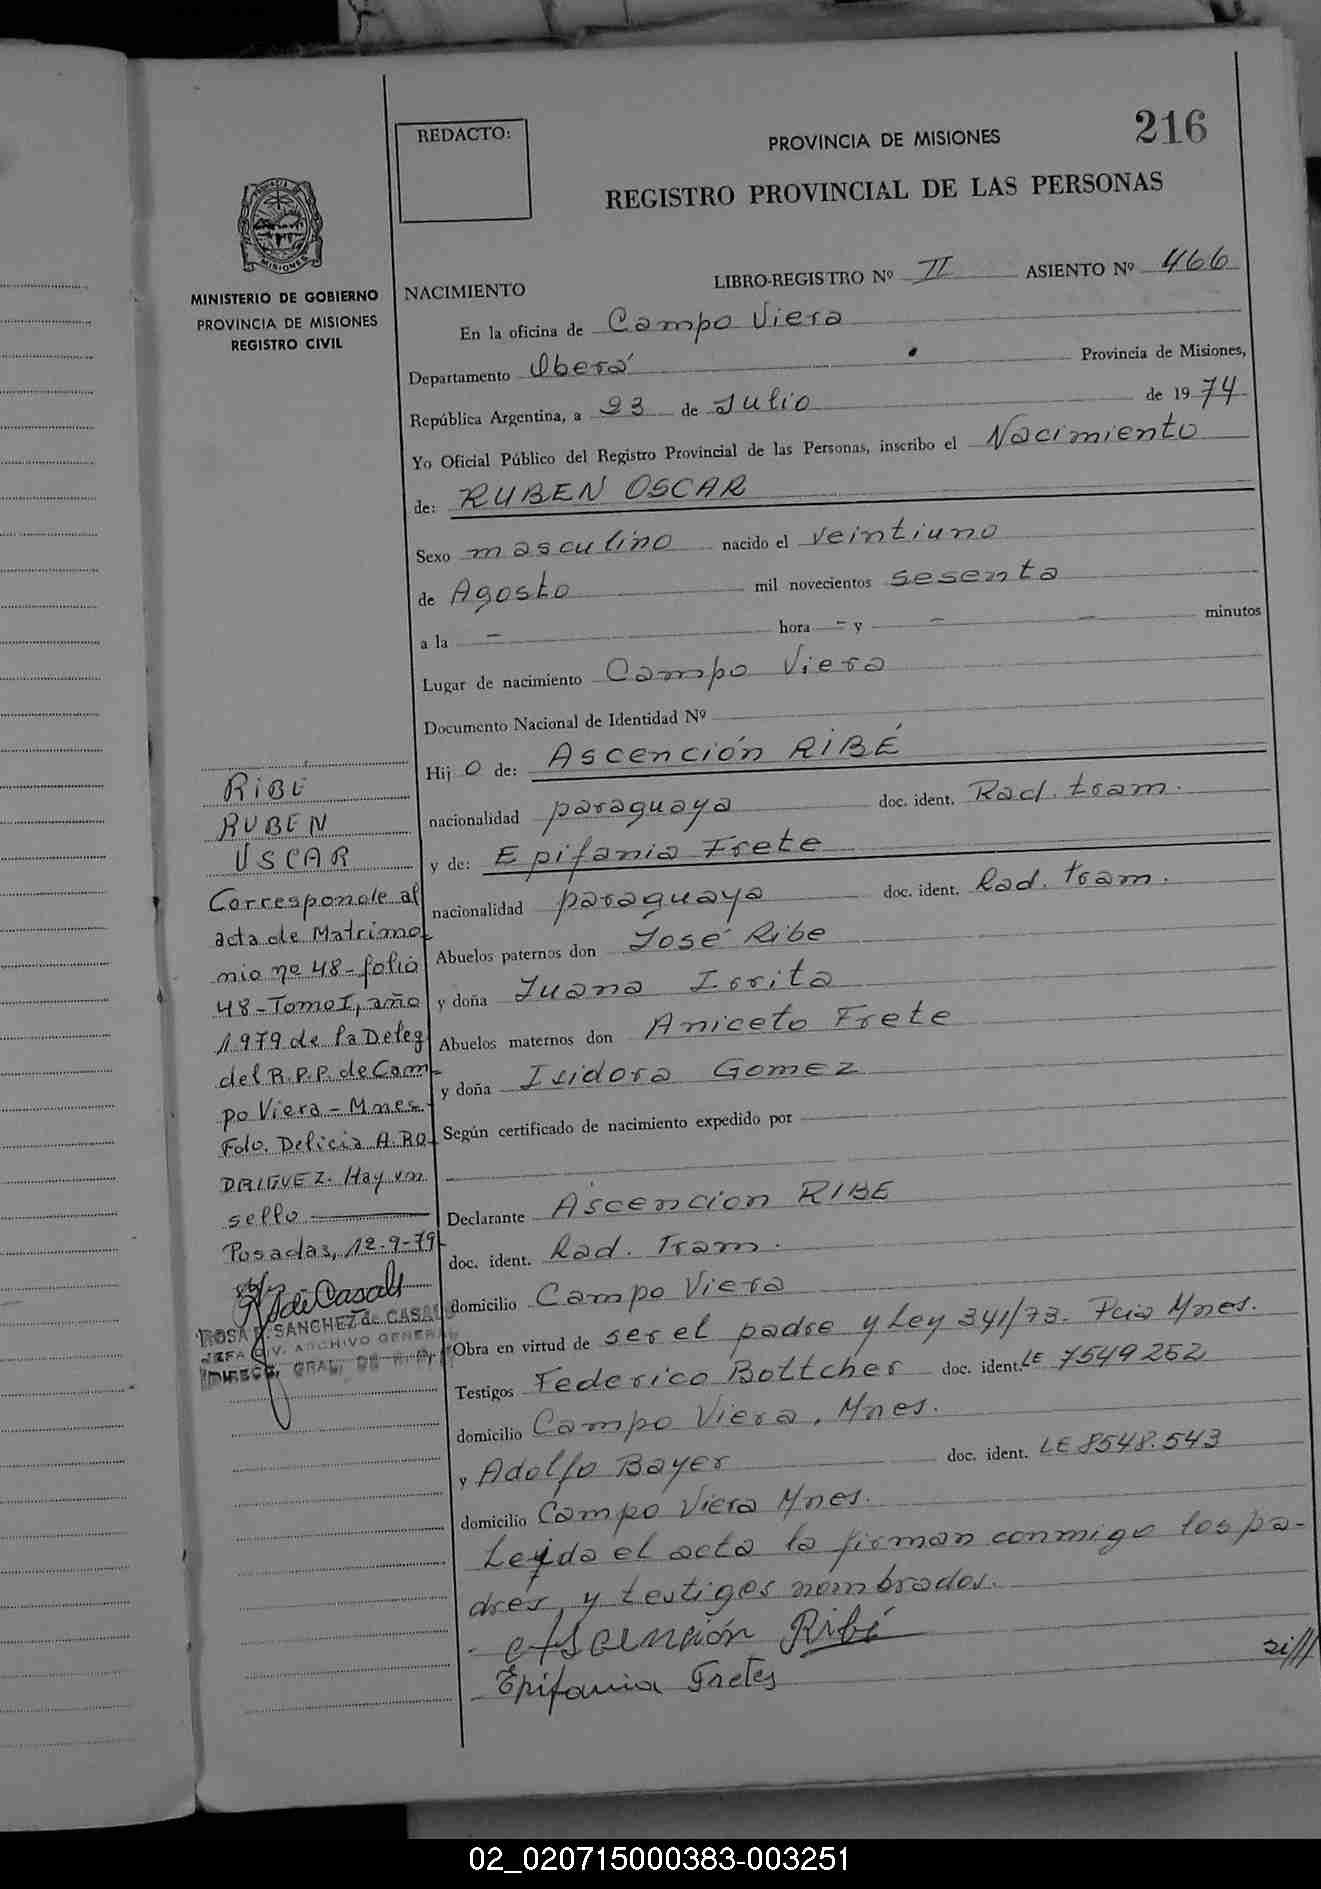 REDACTO:
PROVINCIA DE MISIONES
216
REGISTRO PROVINCIAL DE LAS PERSONAS
MISIONES
MINISTERIO DE GOBIERNO
PROVINCIA DE MISIONES
REGISTRO CIVIL
NACIMIENTO
LIBRO-REGISTRO Nº II ASIENTO Nº 466
En la oficina de Campo Viera
Departamento Oberá Provincia de Misiones,
República Argentina, a 23 de Julio de 1974
Yo Oficial Público del Registro Provincial de las Personas, inscribo el Nacimiento
de: RUBEN OSCAR
Sexo masculino nacido el veintiuno
de Agosto mil novecientos sesenta
a la - hora - y - - minutos
Lugar de nacimiento Campo Viera
Documento Nacional de Identidad Nº
Hij o de: Ascención RIBÉ
nacionalidad paraguaya doc. ident. Rad. tram.
y de: Epifania Frete
nacionalidad paraguaya doc. ident. Rad. tram.
Abuelos paternos don José Ribe
y doña Juana Irrita
Abuelos maternos don Aniceto Frete
y doña Isidora Gomez
Según certificado de nacimiento expedido por
Declarante Ascencion RIBE
doc. ident. Rad. Tram.
domicilio Campo Viera
Obra en virtud de ser el padre y Ley 341/73. Pcia Mnes.
Testigos Federico Bottcher doc. ident. LE 7549252
domicilio Campo Viera, Mnes.
y Adolfo Bayer doc. ident. LE 8548.543
domicilio Campo Viera Mnes.
Leida el acta la firman conmigo los pa-
dres, y testigos nombrados.
Ascención Ribé
Epifania Fretes
RIBE
RUBEN
OSCAR
Corresponde al
acta de Matrimo-
nio nº 48-folio
48-Tomo I, año
1979 de la Deleg
del R.P.P. de Cam-
po Viera-Mnes-
Fdo. Delicia A. RO-
DRIGUEZ. Hay un
sello
Posadas, 12-9-79-
de Casals
ROSA SANCHEZ de CASALS
JEFA DIV. ARCHIVO GENERAL
DIRECC. GRAL. DE R. P. P.
02_020715000383-003251